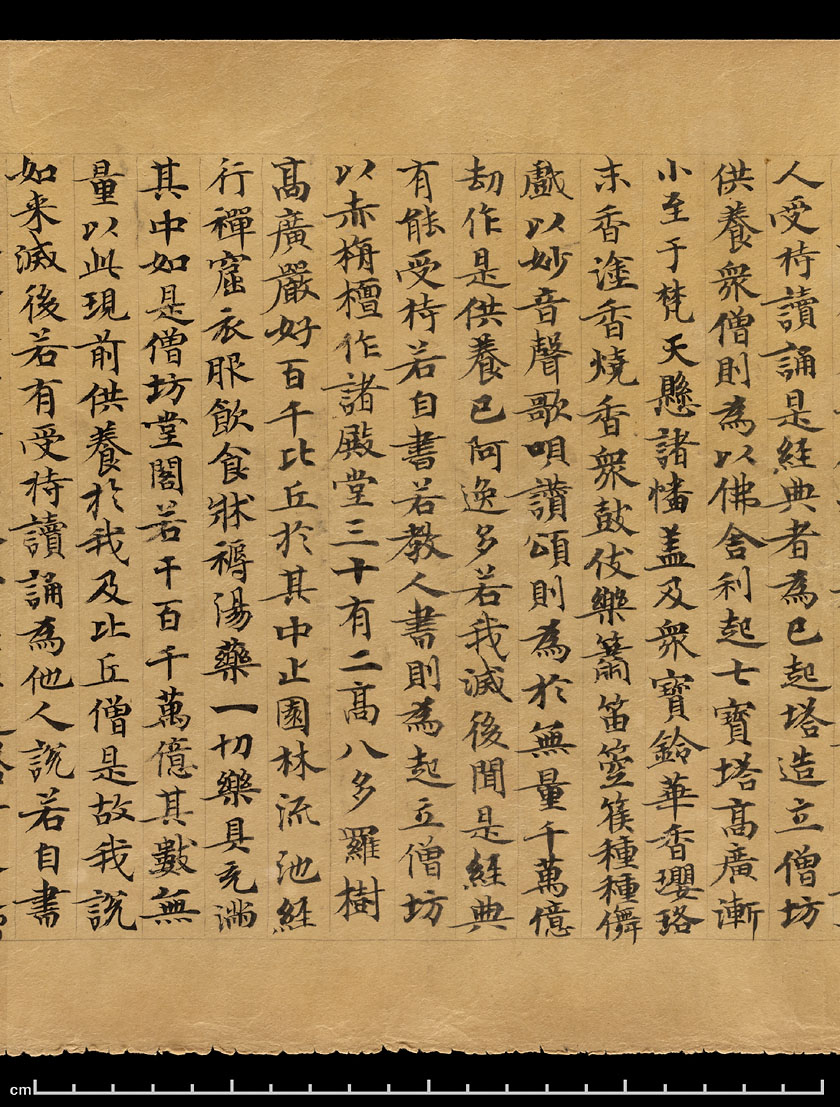 人受持讀誦是經典者為已起塔造立僧坊
供養衆僧則為以佛舍利起七寶塔高廣漸
小至于梵天懸諸幡盖及衆寶鈴華香瓔珞
末香塗香燒香衆鼓伎樂簫笛箜篌種種儛
戲以妙音聲歌唄讚頌則為於無量千萬億
劫作是供養已阿逸多若我滅後聞是經典
有能受持若自書若教人書則為起立僧坊
以赤栴檀作諸殿堂三十有二高八多羅樹
高廣嚴好百千比丘於其中止園林流池經
行禪窟衣服飲食牀褥湯藥一切樂具充滿
其中如是僧坊堂閣若干百千萬億其數無
量以此現前供養於我及比丘僧是故我說
如来滅後若有受持讀誦為他人說若自書